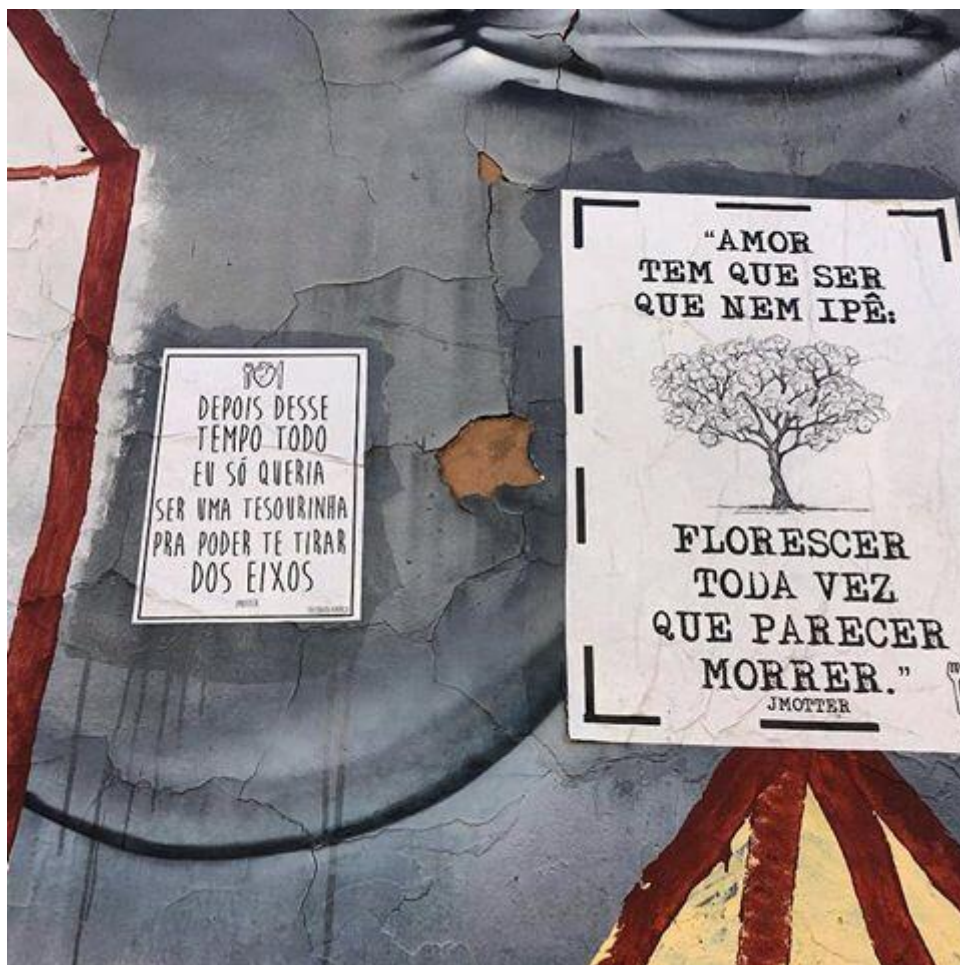 DEPOIS DESSE
TEMPO TODO
EU SÓ QUERIA
SER UMA TESOURINHA
PRA PODER TE TIRAR
DOS EIXOS
JMOTTER
"AMOR
TEM QUE SER
QUE NEM IPÊ:
FLORESCER
TODA VEZ
QUE PARECER
MORRER."
JMOTTER